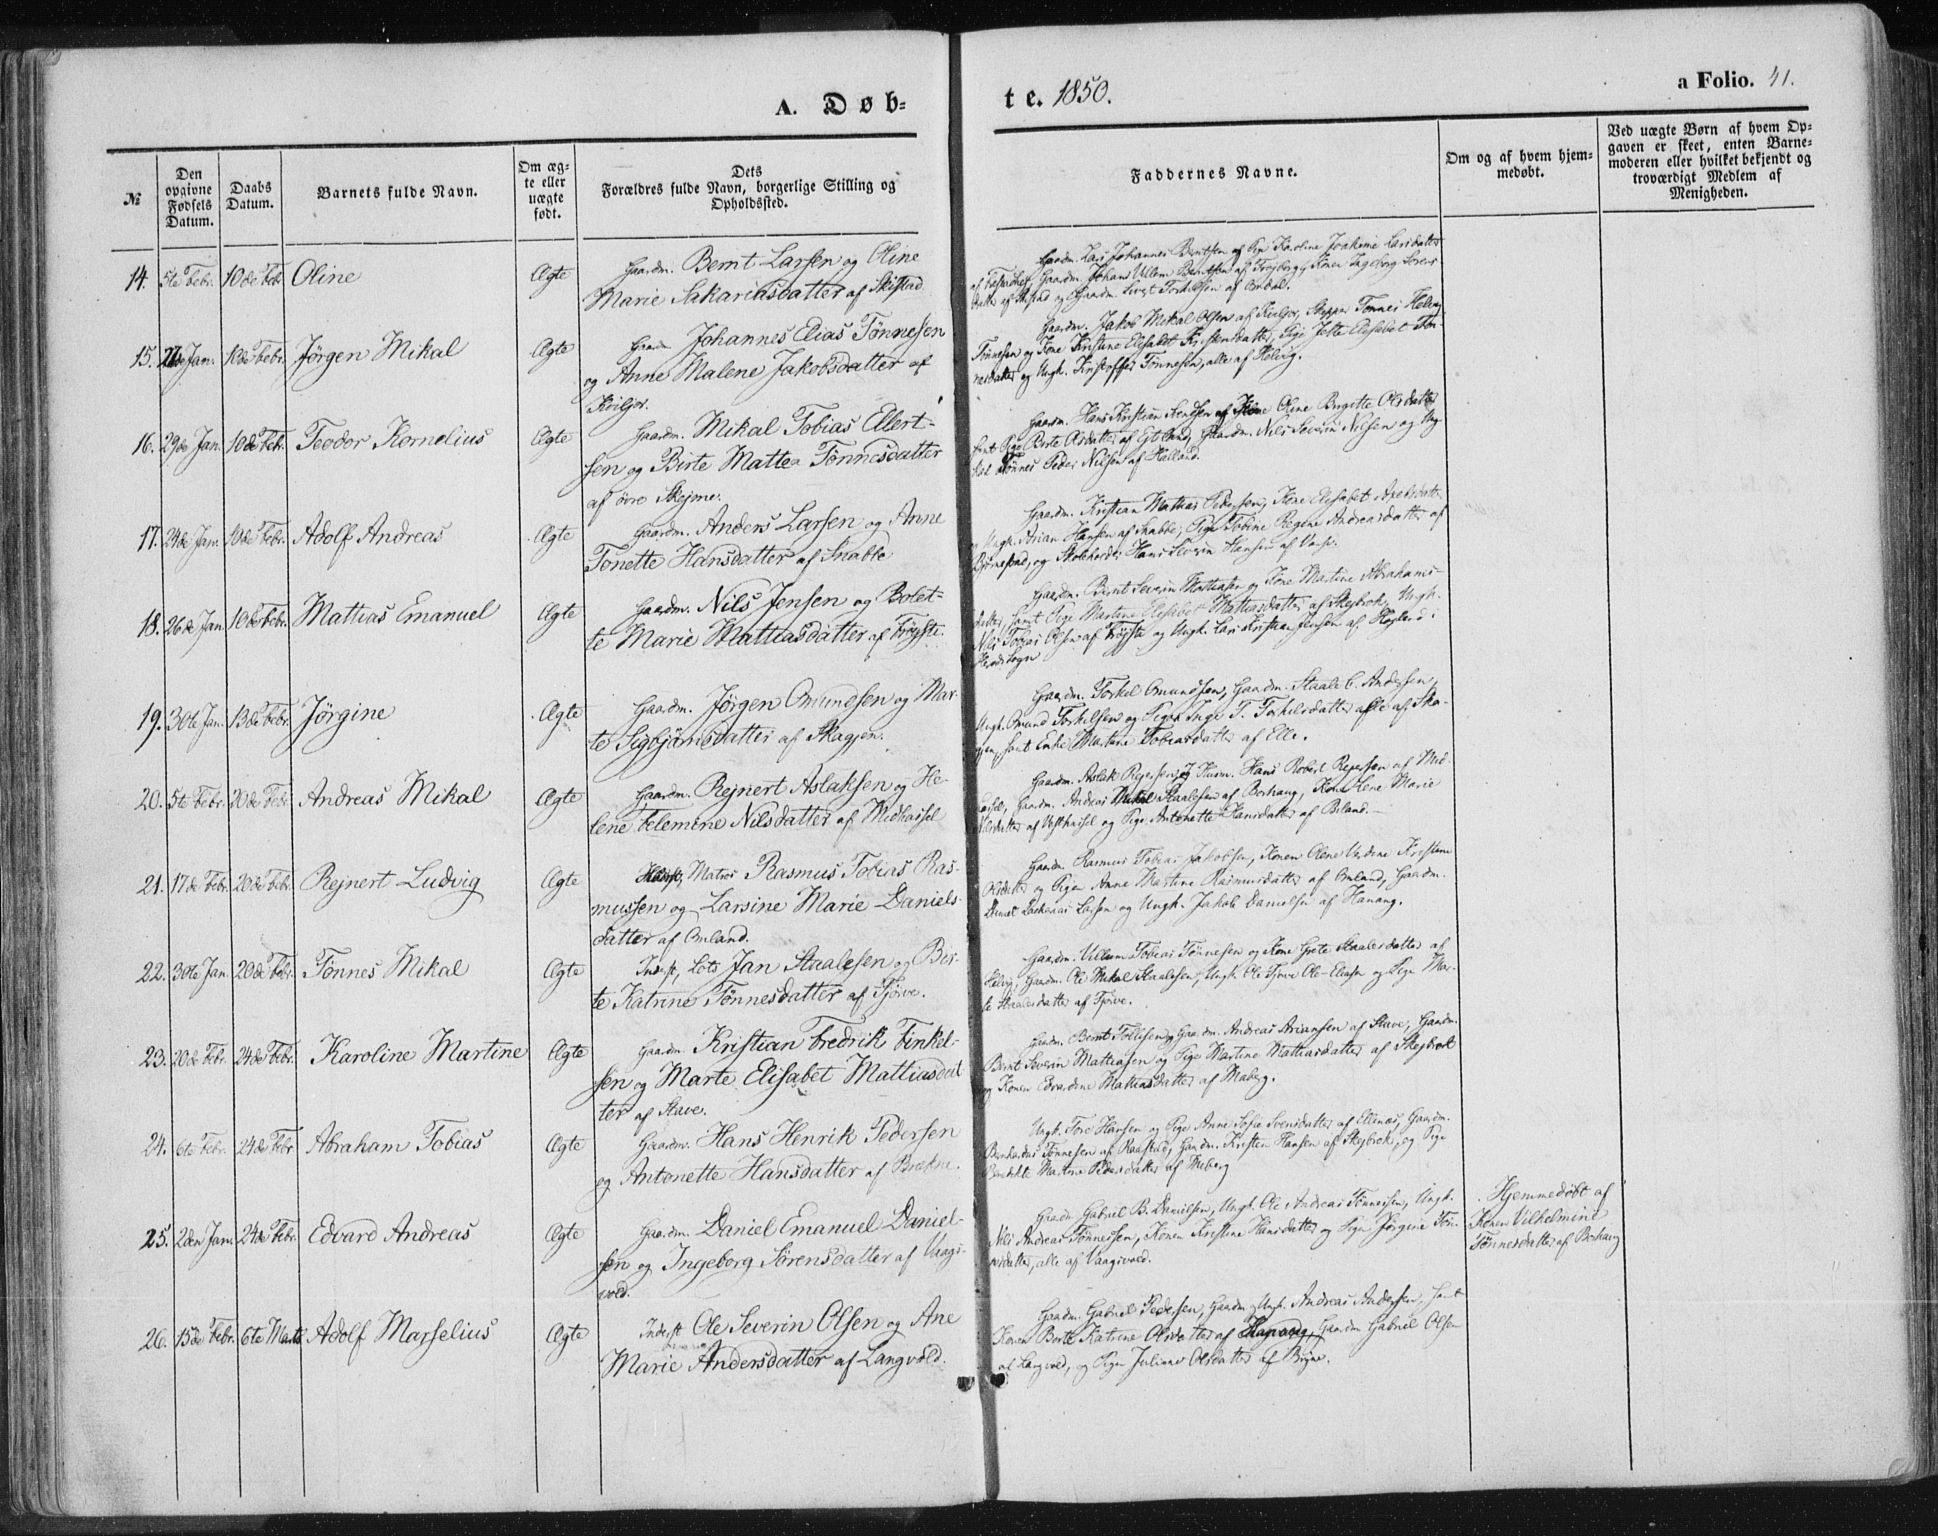 A. Døb-
te. 1850.
a Folio. 41.
№
Den opgivne Fødsels Datum.
Daabs Datum.
Barnets fulde Navn.
Om ægte eller uægte født.
Dets Forældres fulde Navn, borgerlige Stilling og Opholdssted.
Faddernes Navne.
Om og af hvem hjemmedøbt.
Ved uægte Børn af hvem Opgaven er skeet, enten Barnemoderen eller hvilket bekjendt og troværdigt Medlem af Menigheden.
14. 5te Febr. 10de Febr. Oline Ægte Gaardm. Bernt Larsen og Oline
Marie Sakariasdatter af Skistad
Gaardm. Lars Johannes Berntsen og Pige Karoline Joakime Larsdatter
Gaardm. Johans Villem Berntsen af Konen Ingeborg Sørens-
datter af Skistad og Gaardm. Sivert Torkelsen af
15. Jan. 10de Febr. Jørgen Mikal Ægte Gaardm. Johannes Elias Tønnesen
og Anne Malene Jakobsdatter af
Kviljo.
Gaardm. Jakob Mikal Olsen af Kviljo, Skipper Tønnes Helvig
Tønnesen og Kone Kristine Elisabet Kristensdatter, Pige Jette Elisabet Tøn-
nesdatter og Ungk. Kristoffer Tønnesen, alle af Helvig.
16. 29de Jan. 10de Febr. Teodor Kornelius Ægte Gaardm. Mikal Tobias Ellert-
sen og Birte Mattea Tønnesdatter
af övre Skejme.
Gaardm. Hans Kristian Svendsen og Kone Oline Birgitte Olsdatter
samt Pige Berte Olsdatter, af Gaardm. Nils Severin Nilsen og Ung-
kal Tønnes Peder Nilsen af Halland.
17. 24de Jan. 10de Febr. Adolf Andreas Ægte Gaardm. Anders Larsen og Anne
Tonette Hansdatter af Snabbe
Gaardm. Kristian Mathias Pedersen, Kone Elisabet
Ungk. Adrian Hansen af Snabbe, Pige Tobine Regine Andreasdatter af
Bjørnestad, og Skoleholder Hans Severin Hansen af Vanse.
18. 26de Jan. 10de Febr. Mattias Emanuel Ægte Gaardm. Nils Jensen og Bolet-
te Marie Mattiasdatter af Frøyste.
Gaardm. Bernt Severin Mattiasen og Kone Martine Abrahams-
datter, samt Pige Martine Elisabet Mattiasdatter af Skejbrok, Ungk.
Nils Tobias Olsen af Frøyste og Ungk. Lars Kristian Jensen af Høyland i
Herads Sogn
19. 30te Jan. 13de Febr. Jørgine Ægte Gaardm. Jørgen Omundsen og Mar-
te Sigbjørnsdatter af Skagjen.
Gaardm. Torkel Omundsen, Gaardm. Staale C. Andersen,
Ungk. Omund Torkelsen og Pigen Inge T. Torkelsdatter alle af Ska-
gjen, samt Enke Martine Tobiasdatter af Elle.
20. 5te Febr. 20de Febr. Andreas Mikal Ægte Gaardm. Rejnert Aslaksen og He-
lene Nilsdatter af Midhassel
Gaardm. Aslak Rejersen, og Husm. Hans Robert Rejersen af Mid-
hassel, Gaardm. Andreas Mikal Staalesen af Borhaug, Kone Lene Marie
Nilsdatter af Vesthassel og Pige Antonette Hansdatter af Briland.
21. 17de Febr. 20de Febr. Rejnert Ludvig Ægte Matros Rasmus Tobias Ras-
mussen og Larsine Marie Daniels-
datter af Omland.
Gaardm. Rasmus Tobias Jakobsen, Konen Olene Kristene
Olsdatter og Pigen Anne Martine Rasmusdatter af Omland, Gaardm.
Daniel Sacharias Larsen og Ungk. Jakob Danielsen af Hanang.
22. 30te Jan. 20de Febr. Tønnes Mikal Ægte Inderst, Lots Jan Staalesen og Ber-
te Katrine Tønnesdatter af Tjørve.
Gaardm. Villum Tobias Tønnesen og Kone Grete Staalesdatter af
Helvig, Gaardm. Ole Mikal Staalesen, Ungk. Ole Tjørve Ole Eliasen og Pige Mar-
te Staalesdatter af Tjørve.
23. 20de Febr. 24de Febr. Karoline Martine Ægte Gaardm. Kristian Fredrik Finkel-
sen og Marte Elisabet Mattiasdat
ter af Stave.
Gaardm. Bernt Tollefsen og Gaardm. Andreas Ariansen af Stave, Gaardm.
Bernt Severin Mattiasen og Pige Martine Mattiasdatter af Skejbrok
og Konen Edvardine Mattiasdatter af Maberg.
24. 6te Febr. 24de Febr. Abraham Tobias Ægte Gaardm. Hans Henrik Pedersen
og Antonette Hansdatter af Brækne.
Ungk. Tore Hansen og Pige Anne Sofie Svensdatter af Ellenes, Gaardm.
Bernhardus Tønnesen af Raastad, Gaardm. Kristen Hansen af Skejbrok, og Pige
Bendikte Martine Pedersdatter af Meberg
25. 2den Jan. 24de Febr. Edvard Andreas Ægte Gaardm. Daniel Emanuel Daniel-
sen og Ingeborg Sørensdatter af Vaags-
vold.
Gaardm. Gabriel B. Danielsen, Ungk. Ole Andreas Tønnessen, Ungk.
Nils Andreas Tønnessen, Konen Kristine Hansdatter og Pigen Jørgine Tøn-
nesdatter, alle af Vaagsvold.
Hjemmedøbt af
Konen Vilhelmine
Tønnesdatter af Borhaug
26. 15de Febr. 6te Marts Adolf Marselius Ægte Inderst Ole Severin Olsen og Ane
Marie Andersdatter af Langvold.
Gaardm. Gabriel Pedersen, Gaardm. Ungk. Andreas Andersen, samt
Konen Berte Katrine Olsdatter af Hanang, Gaardm Gabriel Olsen
af Langvold, og Pigen Juliane Olsdatter af Bryne.